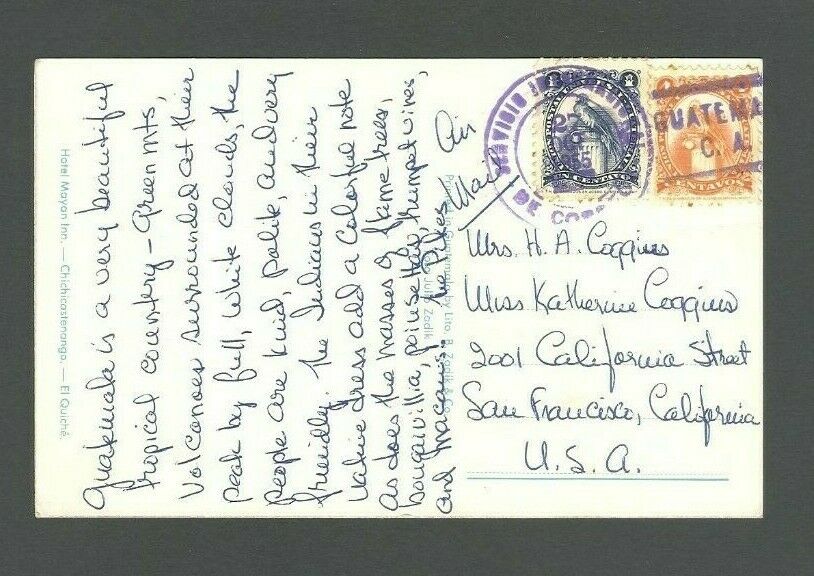 Hotel Mayan Inn. — Chichicastenango. — El Quiché.
Guatemala is a very beautiful
tropical country - Green mts,
volcanoes surrounded at their
peak by full, white clouds, the
people are kind, polite, and very
friendly. The Indians in their
native dress add a colorful note
as does the masses of flame trees,
bougivillia, poinsettas, trumpet vines,
and macaws. The Pipes
Printed in Guatemala by Lito B. Zadik & Co.
Julio Zadik
Air
Mail
SERVICIO
DE CORREOS
25
UN CENTAVO
CENTAVOS
GUATEMALA
C. A.
Mrs. H. A. Coggins
Miss Katherine Coggins
2001 California Street
San Francisco, California
U. S. A.